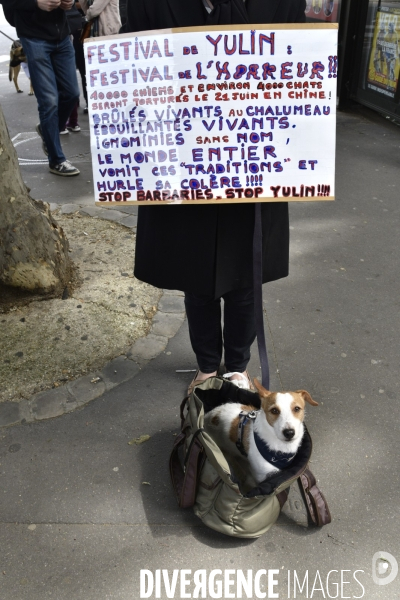 FESTIVAL DE YULIN :
FESTIVAL DE L'HORREUR !!
40000 CHIENS ET ENVIRON 4000 CHATS
SERONT TORTURÉS LE 21 JUIN EN CHINE !
BRÛLÉS VIVANTS AU CHALUMEAU
ÉBOUILLANTÉS VIVANTS.
IGNOMINIES SANS NOM,
LE MONDE ENTIER
VOMIT CES "TRADITIONS" ET
HURLE SA COLÈRE !!!!
STOP BARBARIES. STOP YULIN !!!!
DIVERGENCE IMAGES